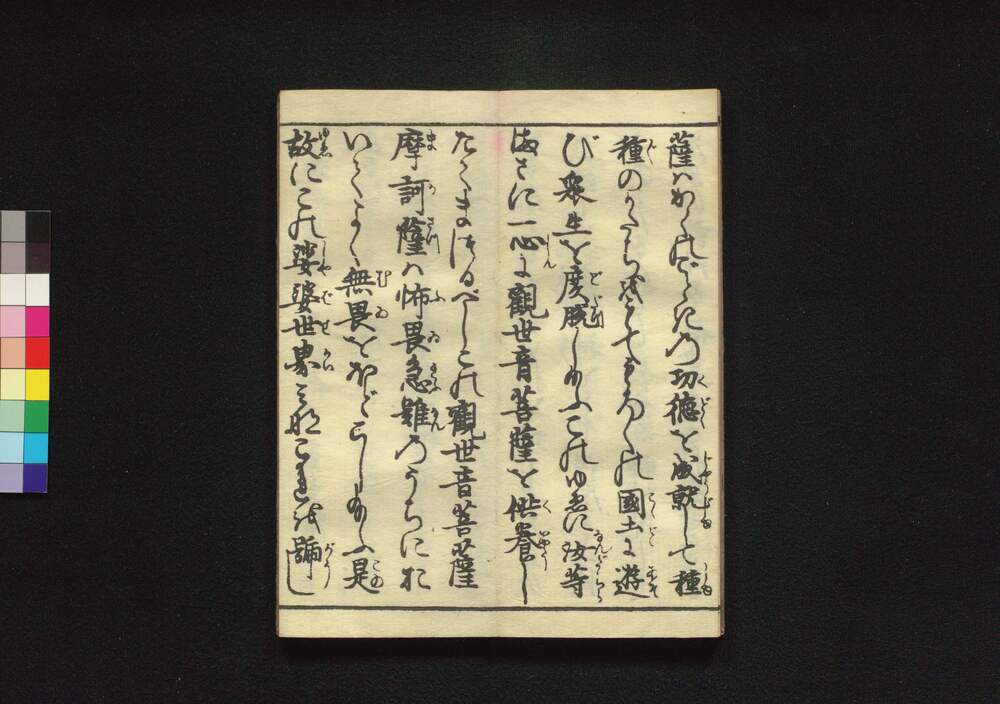 薩はかくのごときの功徳を成就して種
種のかたちを以てもろ〳〵の國土に遊
び衆生を度脱し給ふこのゆゑに汝等
まさに一心に觀世音菩薩を供養し
たてまつるべしこの觀世音菩薩
摩訶薩は怖畏急難のうちにお
いてよく無畏をほどこし給ふ是
故にこの娑婆世界みなこれを號し